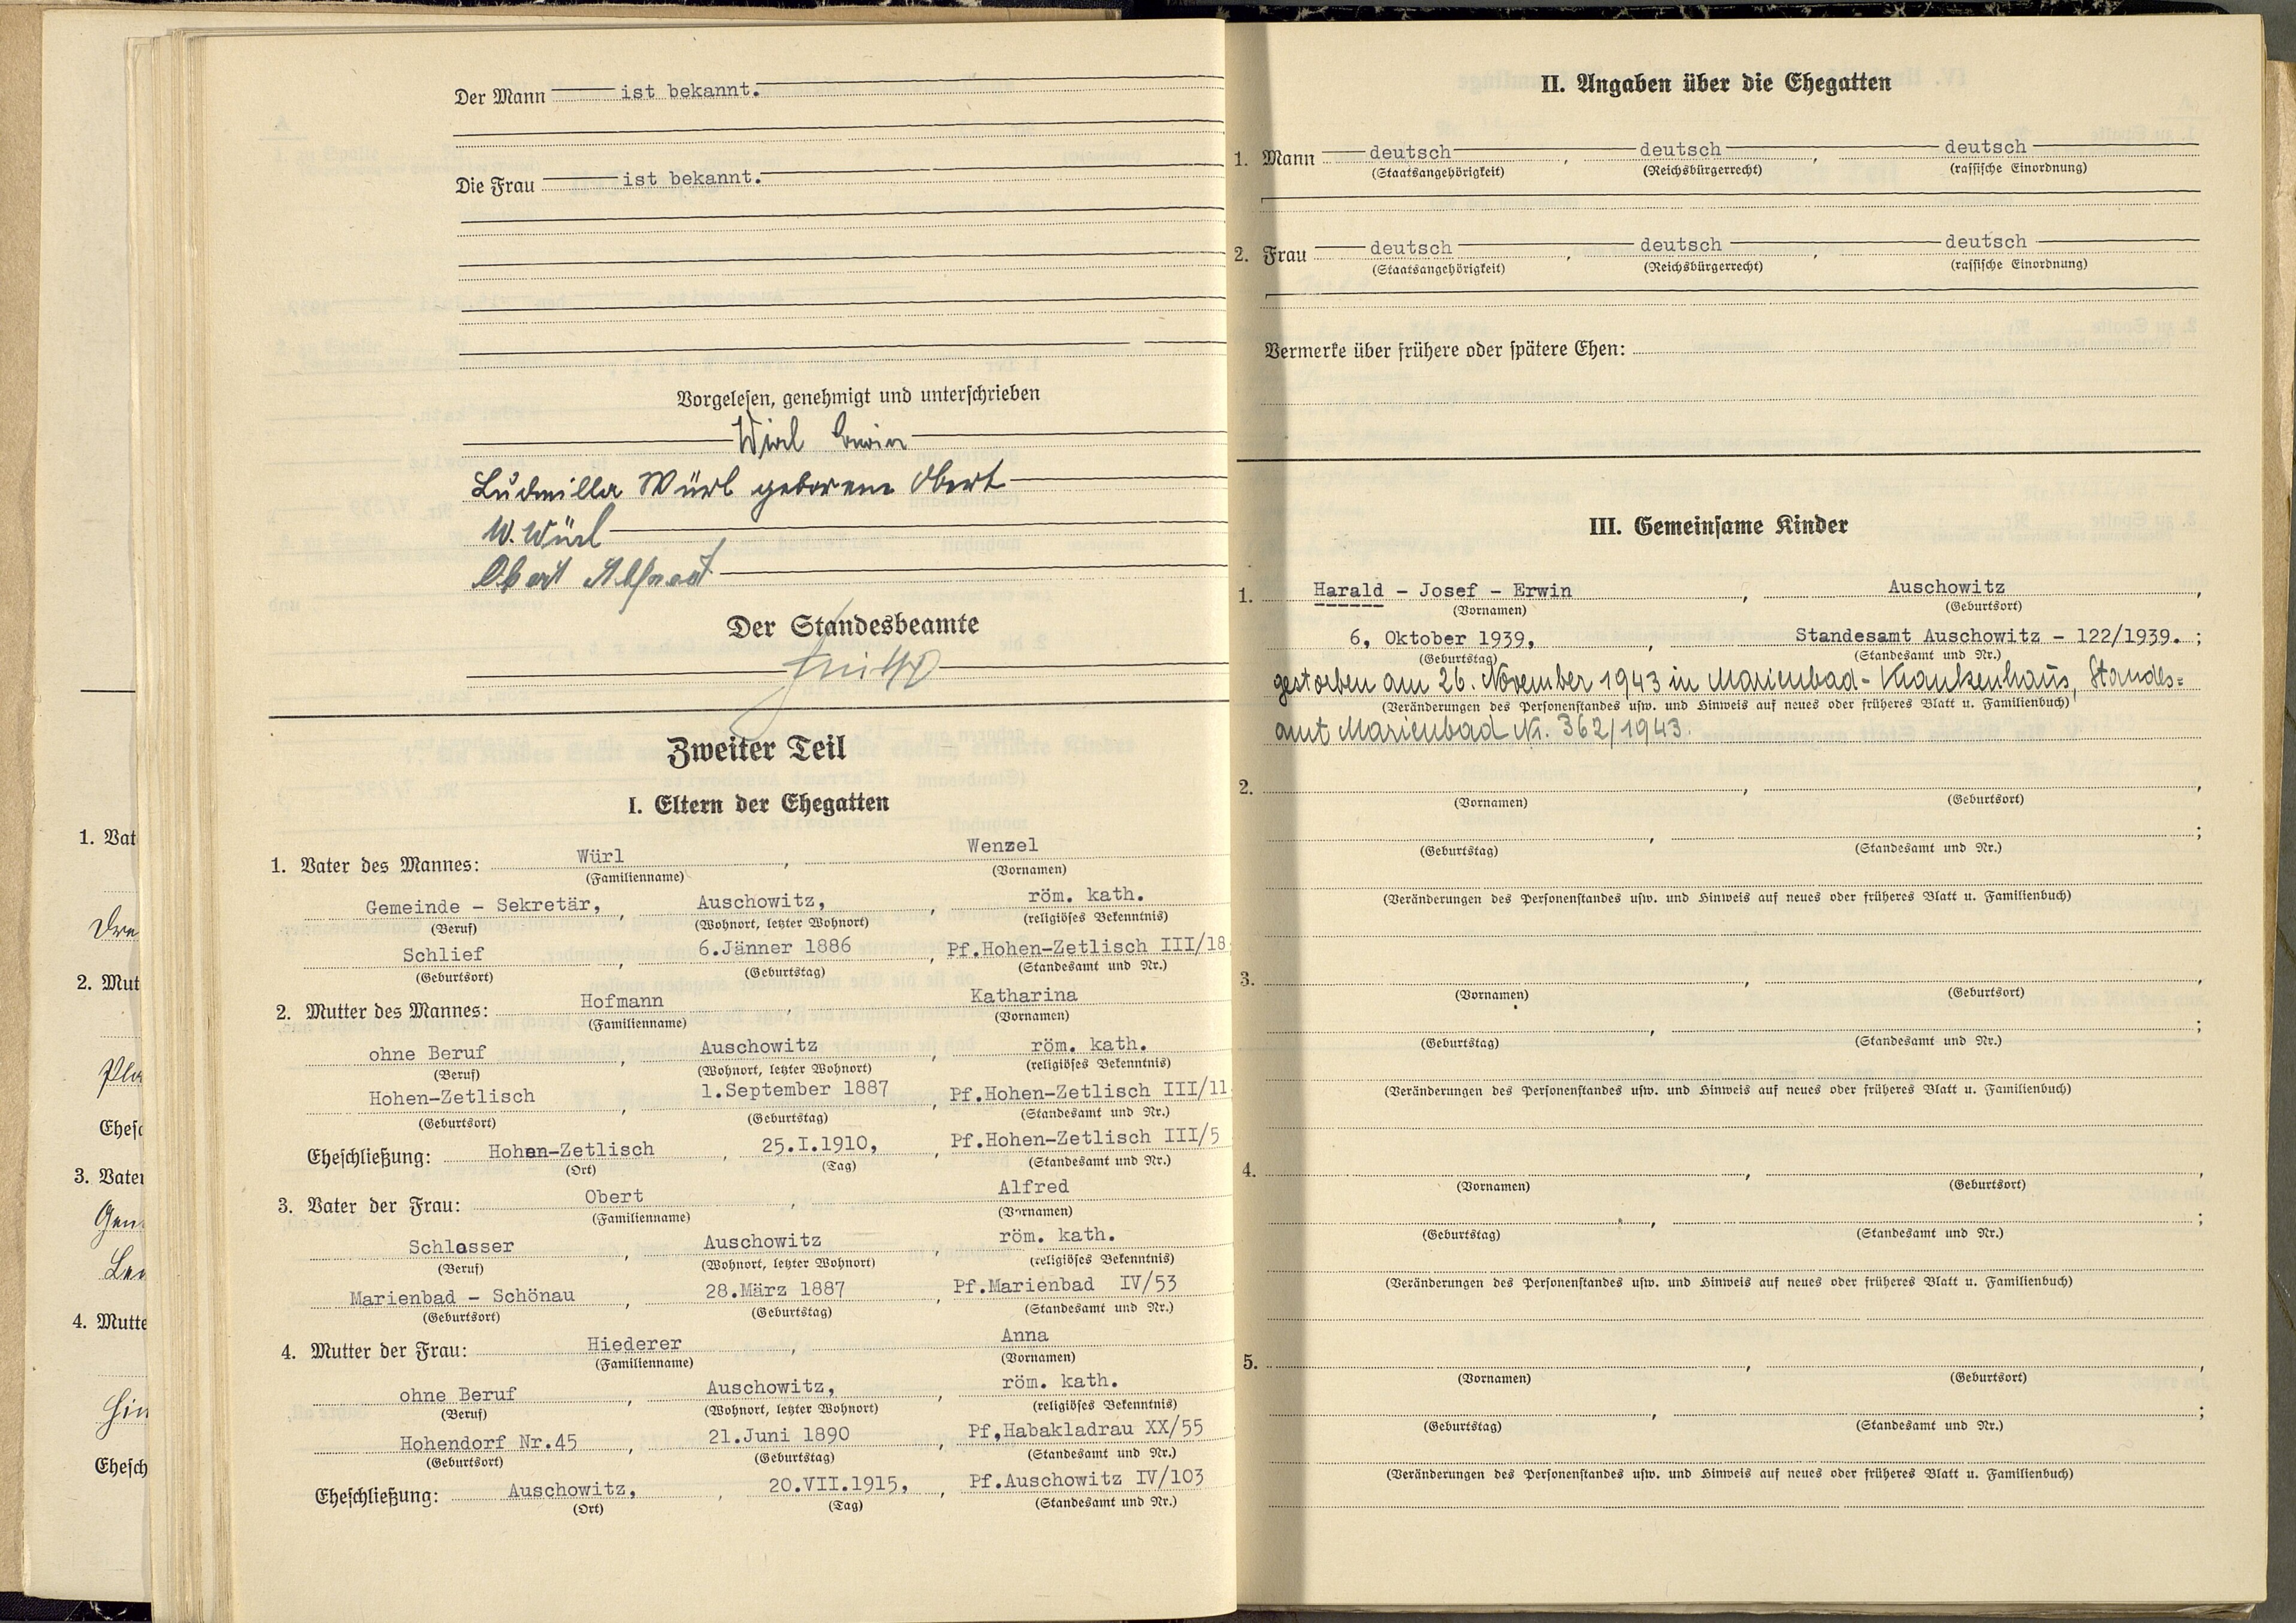 Der Mann ist bekannt.
Die Frau ist bekannt.
Vorgelesen, genehmigt und unterschrieben
Würl Erwin
Ludmilla Würl geborene Obert
W. Würl
Obert Alfred
Der Standesbeamte
Zweiter Teil
I. Eltern der Ehegatten
1. Vater des Mannes: Würl, Wenzel
(Familienname) (Vornamen)
Gemeinde - Sekretär, , Auschowitz, , röm. kath.
(Beruf) (Wohnort, letzter Wohnort) (religiöses Bekenntnis)
Schlief , 6.Jänner 1886 , Pf.Hohen-Zetlisch III/18
(Geburtsort) (Geburtstag) (Standesamt und Nr.)
2. Mutter des Mannes: Hofmann , Katharina
(Familienname) (Vornamen)
ohne Beruf , Auschowitz , röm. kath.
(Beruf) (Wohnort, letzter Wohnort) (religiöses Bekenntnis)
Hohen-Zetlisch , 1.September 1887 , Pf.Hohen-Zetlisch III/11
(Geburtsort) (Geburtstag) (Standesamt und Nr.)
Eheschließung: Hohen-Zetlisch , 25.I.1910, , Pf.Hohen-Zetlisch III/5
(Ort) (Tag) (Standesamt und Nr.)
3. Vater der Frau: Obert , Alfred
(Familienname) (Vornamen)
Schlosser , Auschowitz , röm. kath.
(Beruf) (Wohnort, letzter Wohnort) (religiöses Bekenntnis)
Marienbad - Schönau , 28.März 1887 , Pf.Marienbad IV/53
(Geburtsort) (Geburtstag) (Standesamt und Nr.)
4. Mutter der Frau: Hiederer , Anna
(Familienname) (Vornamen)
ohne Beruf , Auschowitz, , röm. kath.
(Beruf) (Wohnort, letzter Wohnort) (religiöses Bekenntnis)
Hohendorf Nr.45 , 21.Juni 1890 , Pf,Habakladrau XX/55
(Geburtsort) (Geburtstag) (Standesamt und Nr.)
Eheschließung: Auschowitz, , 20.VII.1915, , Pf.Auschowitz IV/103
(Ort) (Tag) (Standesamt und Nr.)
1. Vat
2. Mut
Ehesc
3. Vater
4. Mutte
Ehesch
II. Angaben über die Ehegatten
1. Mann deutsch , deutsch , deutsch
(Staatsangehörigkeit) (Reichsbürgerrecht) (rassische Einordnung)
2. Frau deutsch , deutsch , deutsch
(Staatsangehörigkeit) (Reichsbürgerrecht) (rassische Einordnung)
Vermerke über frühere oder spätere Ehen:
III. Gemeinsame Kinder
1. Harald - Josef - Erwin , Auschowitz ,
(Vornamen) (Geburtsort)
6, Oktober 1939, , Standesamt Auschowitz - 122/1939. ;
(Geburtstag) (Standesamt und Nr.)
gestorben am 26. November 1943 in Marienbad - Krankenhaus, Standes-
(Veränderungen des Personenstandes usw. und Hinweis auf neues oder früheres Blatt u. Familienbuch)
amt Marienbad Nr. 362/1943.
2. , ,
(Vornamen) (Geburtsort)
, ;
(Geburtstag) (Standesamt und Nr.)
(Veränderungen des Personenstandes usw. und Hinweis auf neues oder früheres Blatt u. Familienbuch)
3. , ,
(Vornamen) (Geburtsort)
, ;
(Geburtstag) (Standesamt und Nr.)
(Veränderungen des Personenstandes usw. und Hinweis auf neues oder früheres Blatt u. Familienbuch)
4. , ,
(Vornamen) (Geburtsort)
, ;
(Geburtstag) (Standesamt und Nr.)
(Veränderungen des Personenstandes usw. und Hinweis auf neues oder früheres Blatt u. Familienbuch)
5. , ,
(Vornamen) (Geburtsort)
, ;
(Geburtstag) (Standesamt und Nr.)
(Veränderungen des Personenstandes usw. und Hinweis auf neues oder früheres Blatt u. Familienbuch)